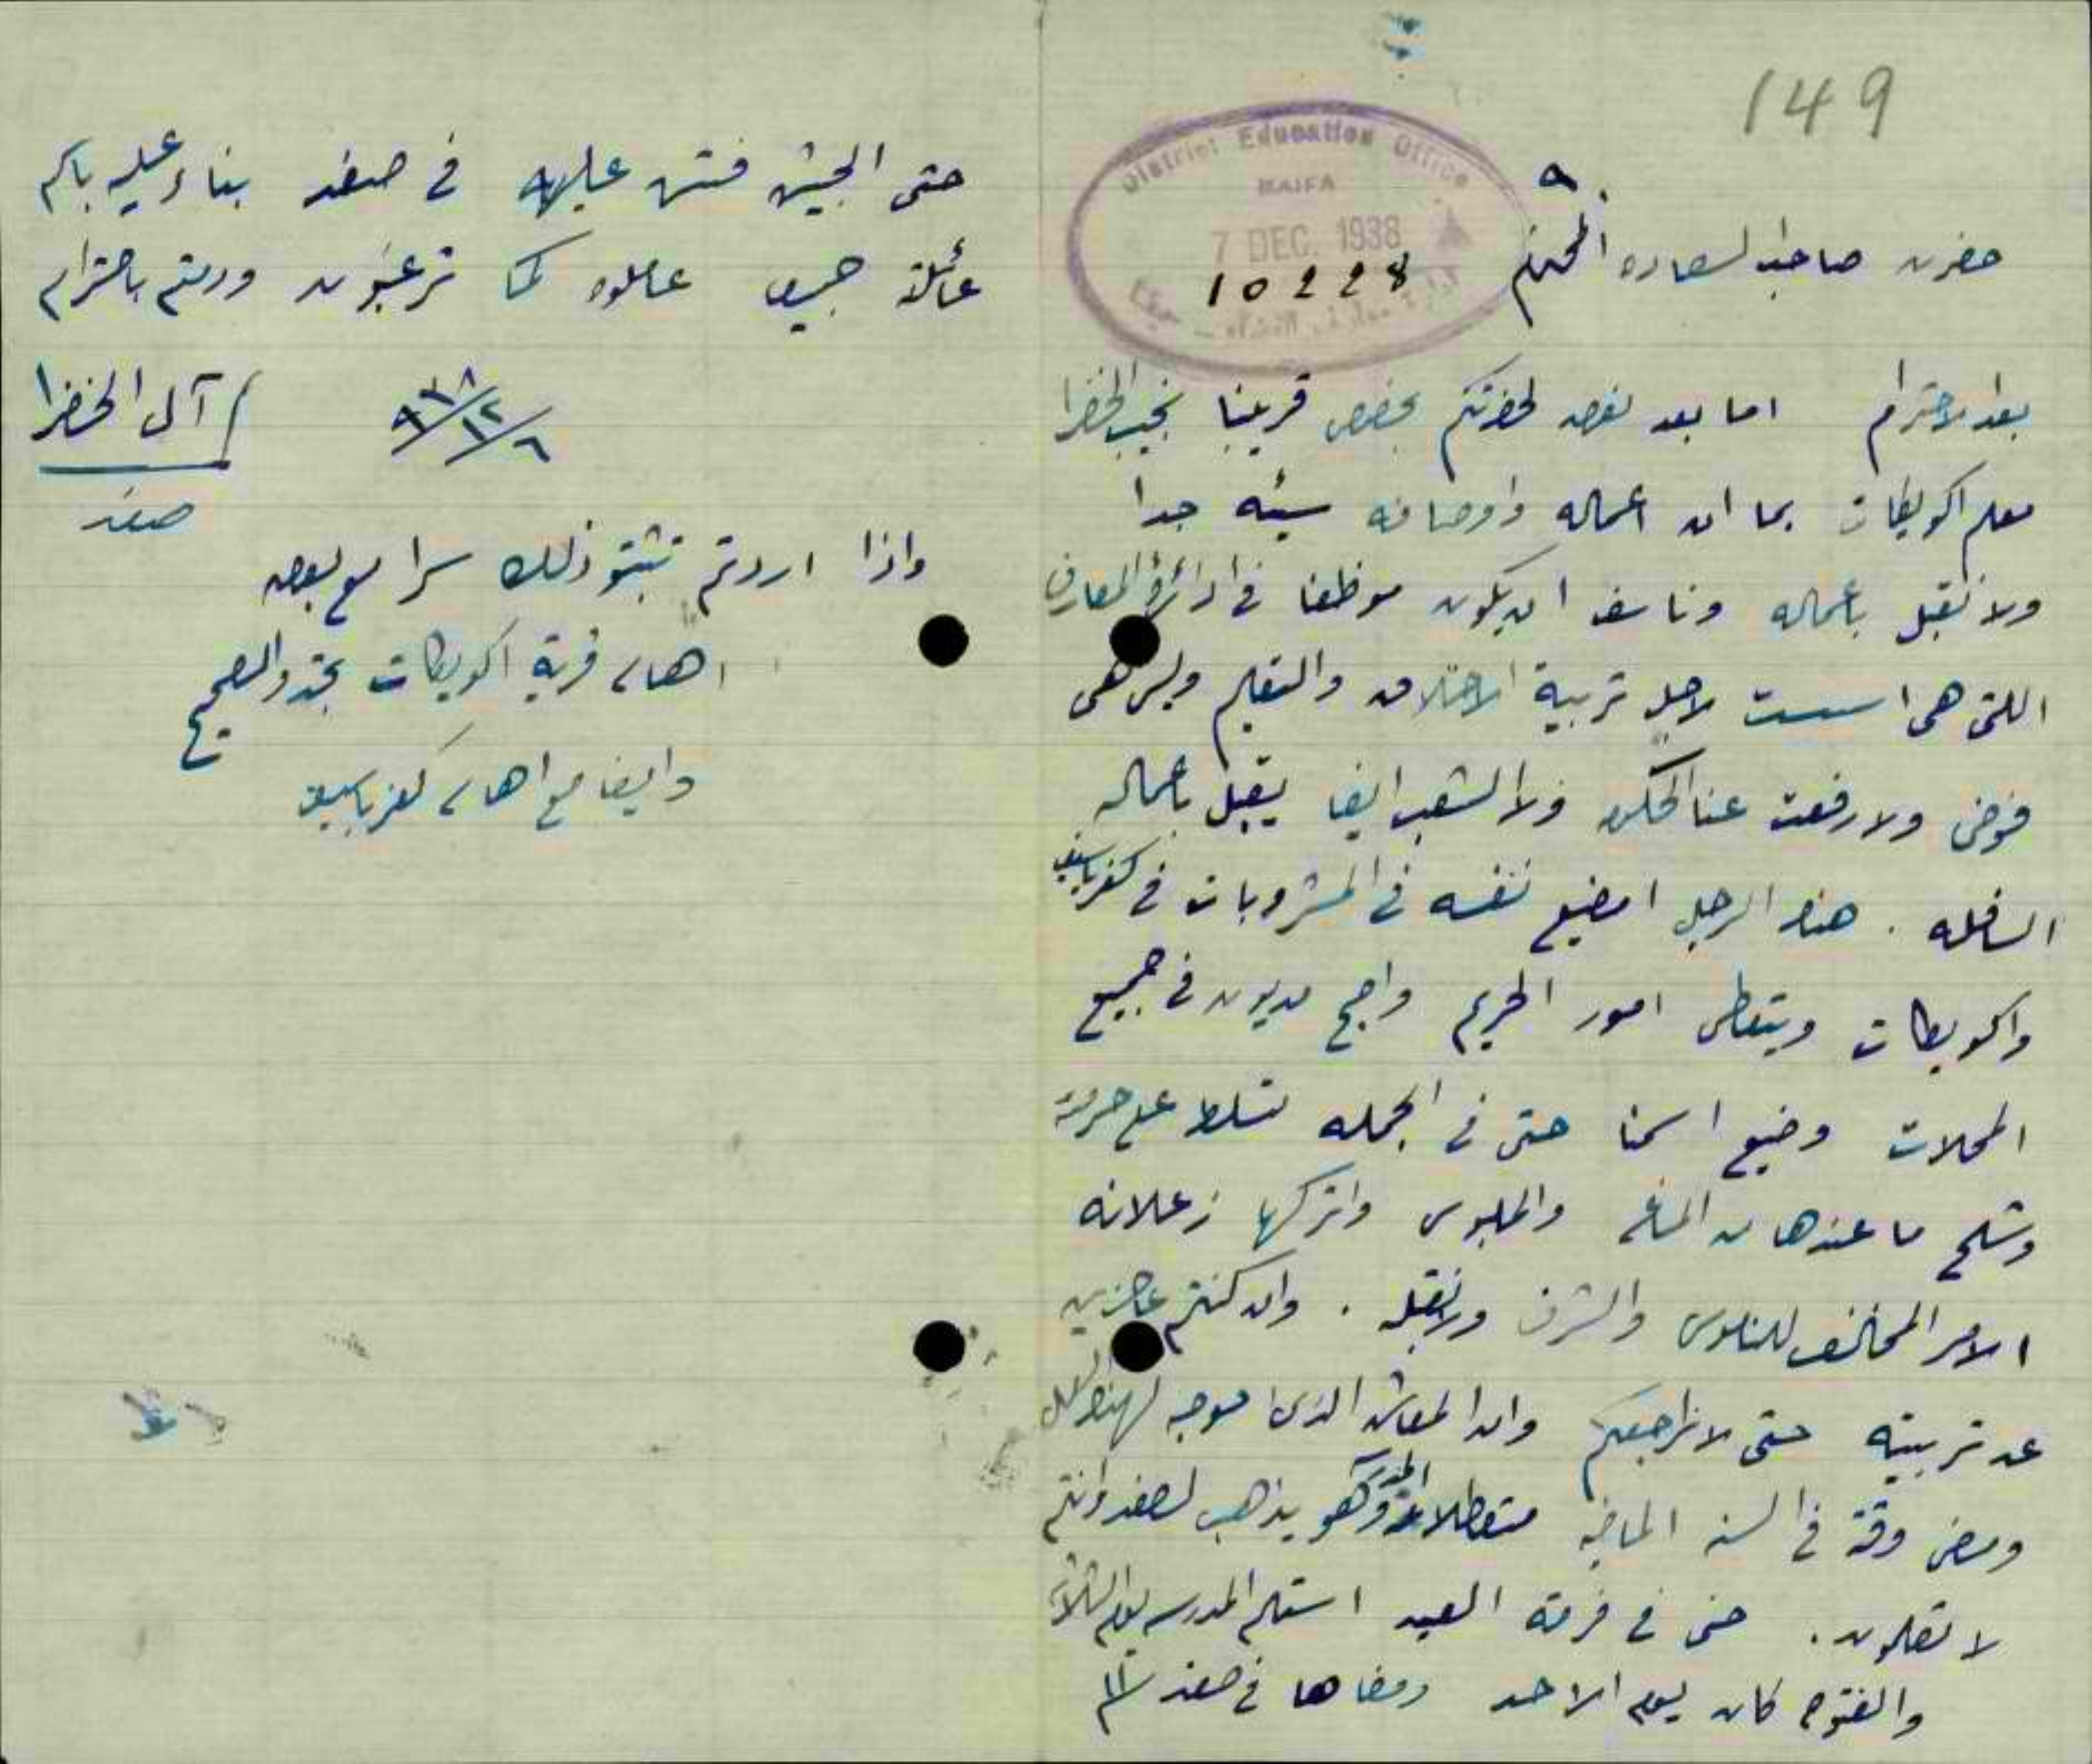 149
District Education Office
HAIFA
7 DEC. 1938
10228
حضرت صاحب السعاده المحترم
بعد الاحترام اما بعد نعرض لحضرتكم بخصوص قريبنا نجيب الخضرا
معلم اكويكات بما ان اعماله واوصافه سيئه جدا
ولا نقبل باعماله وناسف ان يكون موظفا في ادائرة المعارف
اللتي هي اسست لاجل تربية الاخلاق والتعليم وليس هي
فوضى ولا رفعت عنا الحكومه ولا الشعب ايضا يقبل باعماله
السافله . هذا الرجل امضيع نفسه في المشروبات في كفرياسيف
واكويكات ويتعطى امور الحريم واصبح مديون في جميع
المحلات وضيع اسمنا حتى في الجمله تسلط على حرمة
وشلح ما عندها من المصاغ والملبوس واتركها زعلانه
الامر المخالف للناموس والشرف ولا نقبله . وان كنتم عاجزين
عن تربيته حتى لا نراجعكم وان المعاش الذي موجه لهذا العمل
ومضى وقته في السنه الماضيه متعطلا المدرسه وهو يذهب لصفد وانتم
لا تعلمون . حتى في فرصة العيد استلم المدرسه يوم الثلاثاء
والفتوح كان يوم الاحد ومضاها في صفد
حتى الجيش فتش عليه في صفد بناء عليه باسم
عائلة جميعا عاملوه كما ترغبون ودمتم باحترام
٦/١٢/٩٣٨
آل الخضرا
صفد
واذا اردتم تثبتو ذلك سرا مع بعض
اهالي قرية اكويكات تجدو الصحيح
وايضا مع اهالي كفرياسيف